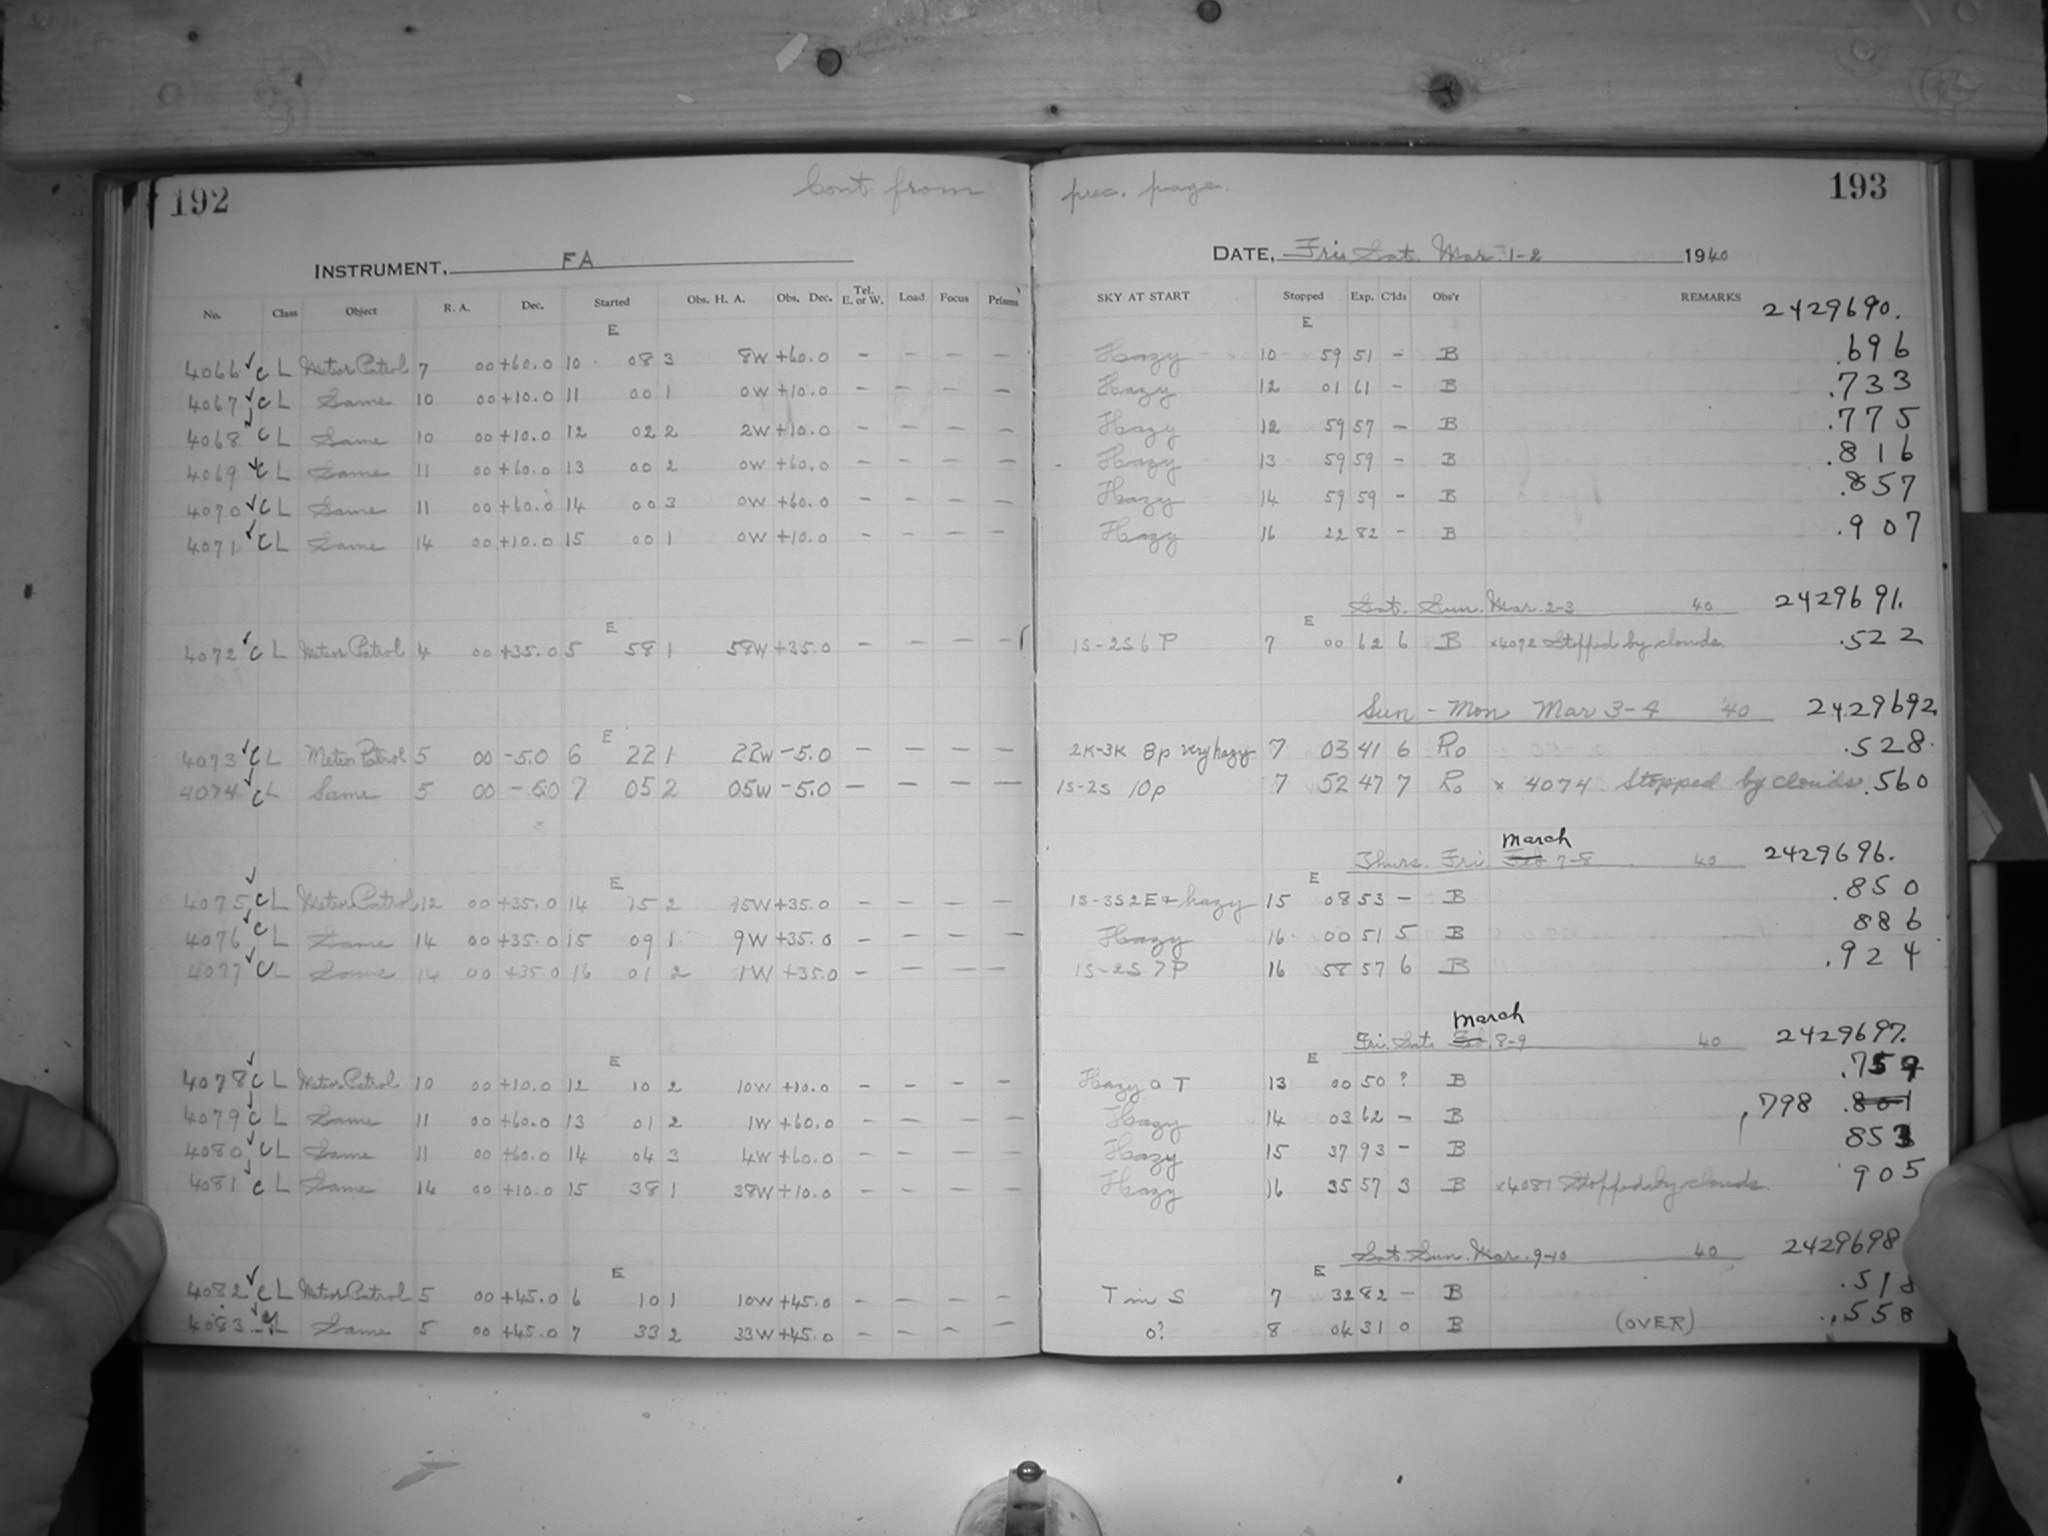 192 Cont. from prec. page. 193
INSTRUMENT, FA DATE, Fri. Sat. Mar. 1-2 1940
No. Class Object R. A. Dec. Started Obs. H. A. Obs. Dec. Tel. E. or W. Load Focus Prisms SKY AT START Stopped Exp. C'lds Obs'r REMARKS 2429690.
E E
4066 ✓ C L Meteor Patrol 7 00 +60.0 10 08 3 8W +60.0 — — — — Hazy 10 59 51 — B .696
4067 ✓ C L Same 10 00 +10.0 11 00 1 0W +10.0 — — — — Hazy 12 01 61 — B .733
4068 ✓ C L Same 10 00 +10.0 12 02 2 2W +10.0 — — — — Hazy 12 59 57 — B .775
4069 ✓ C L Same 11 00 +60.0 13 00 2 0W +60.0 — — — — Hazy 13 59 59 — B .816
4070 ✓ C L Same 11 00 +60.0 14 00 3 0W +60.0 — — — — Hazy 14 59 59 — B .857
4071 ✓ C L Same 14 00 +10.0 15 00 1 0W +10.0 — — — — Hazy 16 22 82 — B .907
Sat. Sun. Mar. 2-3 40 2429691.
E E
4072 ✓ C L Meteor Patrol 4 00 +35.0 5 58 1 58W +35.0 — — — — 1S-2S 6 P 7 00 62 6 B ×4072 Stopped by clouds. .522
Sun - Mon Mar 3-4 '40 2429692
E
4073 ✓ C L Meteor Patrol 5 00 -5.0 6 22 1 22W -5.0 — — — — 2K-3K 8p very hazy 7 03 41 6 Ro .528
4074 ✓ C L Same 5 00 -5.0 7 05 2 05W -5.0 — — — — 1S-2S 10p 7 52 47 7 Ro × 4074 Stopped by clouds .560
March
Thurs. Fri. Feb. 7-8 40 2429696.
E E
4075 ✓ C L Meteor Patrol 12 00 +35.0 14 15 2 15W +35.0 — — — — 1S-3S 2E + hazy 15 08 53 — B .850
4076 ✓ C L Same 14 00 +35.0 15 09 1 9W +35.0 — — — — Hazy 16 00 51 5 B 886
4077 ✓ C L Same 14 00 +35.0 16 01 2 1W +35.0 — — — — 1S-2S 7 P 16 58 57 6 B .924
March
Fri. Sat. Feb. 8-9 40 2429697.
E E
4078 ✓ C L Meteor Patrol 10 00 +10.0 12 10 2 10W +10.0 — — — — Hazy o T 13 00 50 ? B .759
4079 ✓ C L Same 11 00 +60.0 13 01 2 1W +60.0 — — — — Hazy 14 03 62 — B .798 .801
4080 ✓ C L Same 11 00 +60.0 14 04 3 4W +60.0 — — — — Hazy 15 37 93 — B 853
4081 ✓ C L Same 14 00 +10.0 15 38 1 38W +10.0 — — — — Hazy 16 35 57 3 B ×4081 Stopped by clouds. 905
Sat Sun. Mar. 9-10 40 2429698
E E
4082 ✓ C L Meteor Patrol 5 00 +45.0 6 10 1 10W +45.0 — — — — T in S 7 32 82 — B .518
4083 ✓ C L Same 5 00 +45.0 7 33 2 33W +45.0 — — — — o? 8 04 31 0 B (OVER) .558